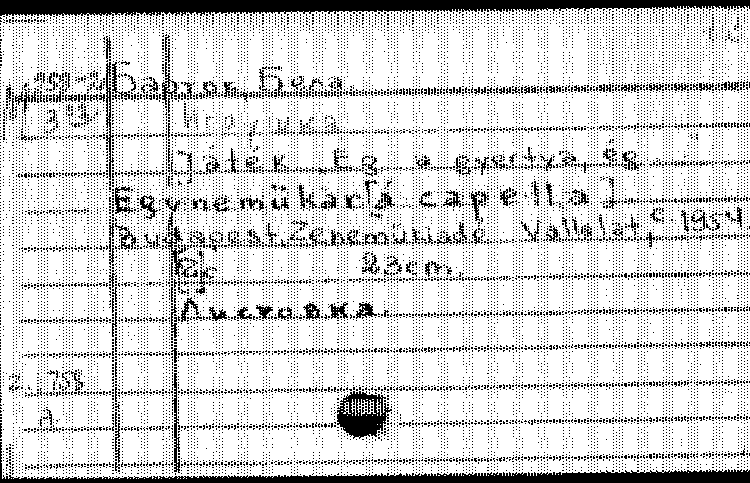 Барток, Бела.
Игрушка
[Játék „Ég a gyertya, ég
Egynemükar [á capella]
Budapest, Zenemükiadó Vallalat, c 1954.
23cm.
Листовка.
2. 758